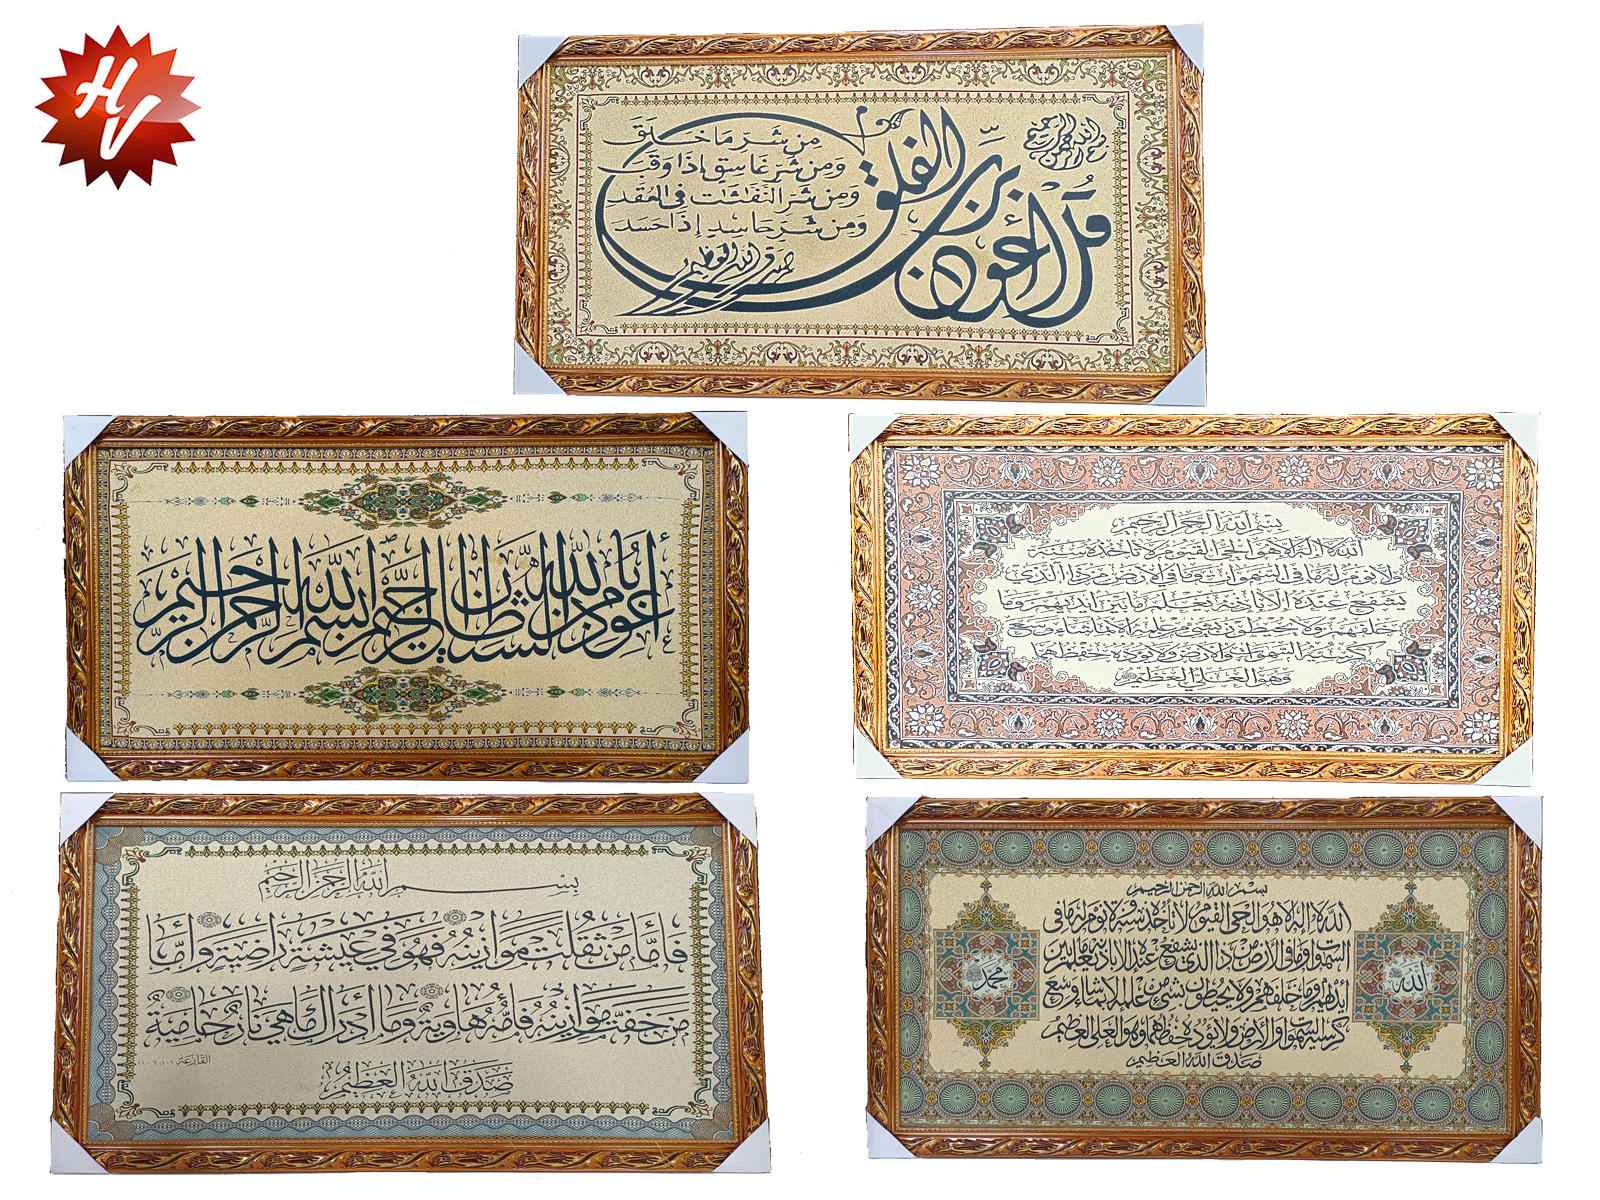 HV
بسم الله الرحمن الرحيم
قُلْ أَعُوذُ بِرَبِّ الْفَلَقِ
مِن شَرِّ مَا خَلَقَ
وَمِن شَرِّ غَاسِقٍ إِذَا وَقَبَ
وَمِن شَرِّ النَّفَّٰثَٰتِ فِي الْعُقَدِ
وَمِن شَرِّ حَاسِدٍ إِذَا حَسَدَ
صدق الله العظيم
أعوذ بالله من الشيطان الرجيم بسم الله الرحمن الرحيم
بسم الله الرحمن الرحيم
الله لا إله إلا هو الحي القيوم لا تأخذه سنة
ولا نوم له ما في السموات وما في الأرض من ذا الذي
يشفع عنده إلا بإذنه يعلم ما بين أيديهم وما
خلفهم ولا يحيطون بشيء من علمه إلا بما شاء وسع
كرسيه السموات والأرض ولا يؤده حفظهما
وهو العلي العظيم
بسم الله الرحمن الرحيم
فَأَمَّا مَن ثَقُلَتْ مَوَازِينُهُ فَهُوَ فِي عِيشَةٍ رَاضِيَةٍ وَأَمَّا
مَنْ خَفَّتْ مَوَازِينُهُ فَأُمُّهُ هَاوِيَةٌ وَمَا أَدْرَاكَ مَا هِيَ نَارٌ حَامِيَةٌ
القارعة
صَدَقَ اللهُ الْعَظِيمُ
بسم الله الرحمن الرحيم
الله لا إله إلا هو الحي القيوم لا تأخذه سنة ولا نوم له ما في
السموات وما في الأرض من ذا الذي يشفع عنده إلا بإذنه يعلم ما بين
أيديهم وما خلفهم ولا يحيطون بشيء من علمه إلا بما شاء وسع
كرسيه السموات والأرض ولا يؤده حفظهما وهو العلي العظيم
صدق الله العظيم
محمد
الله